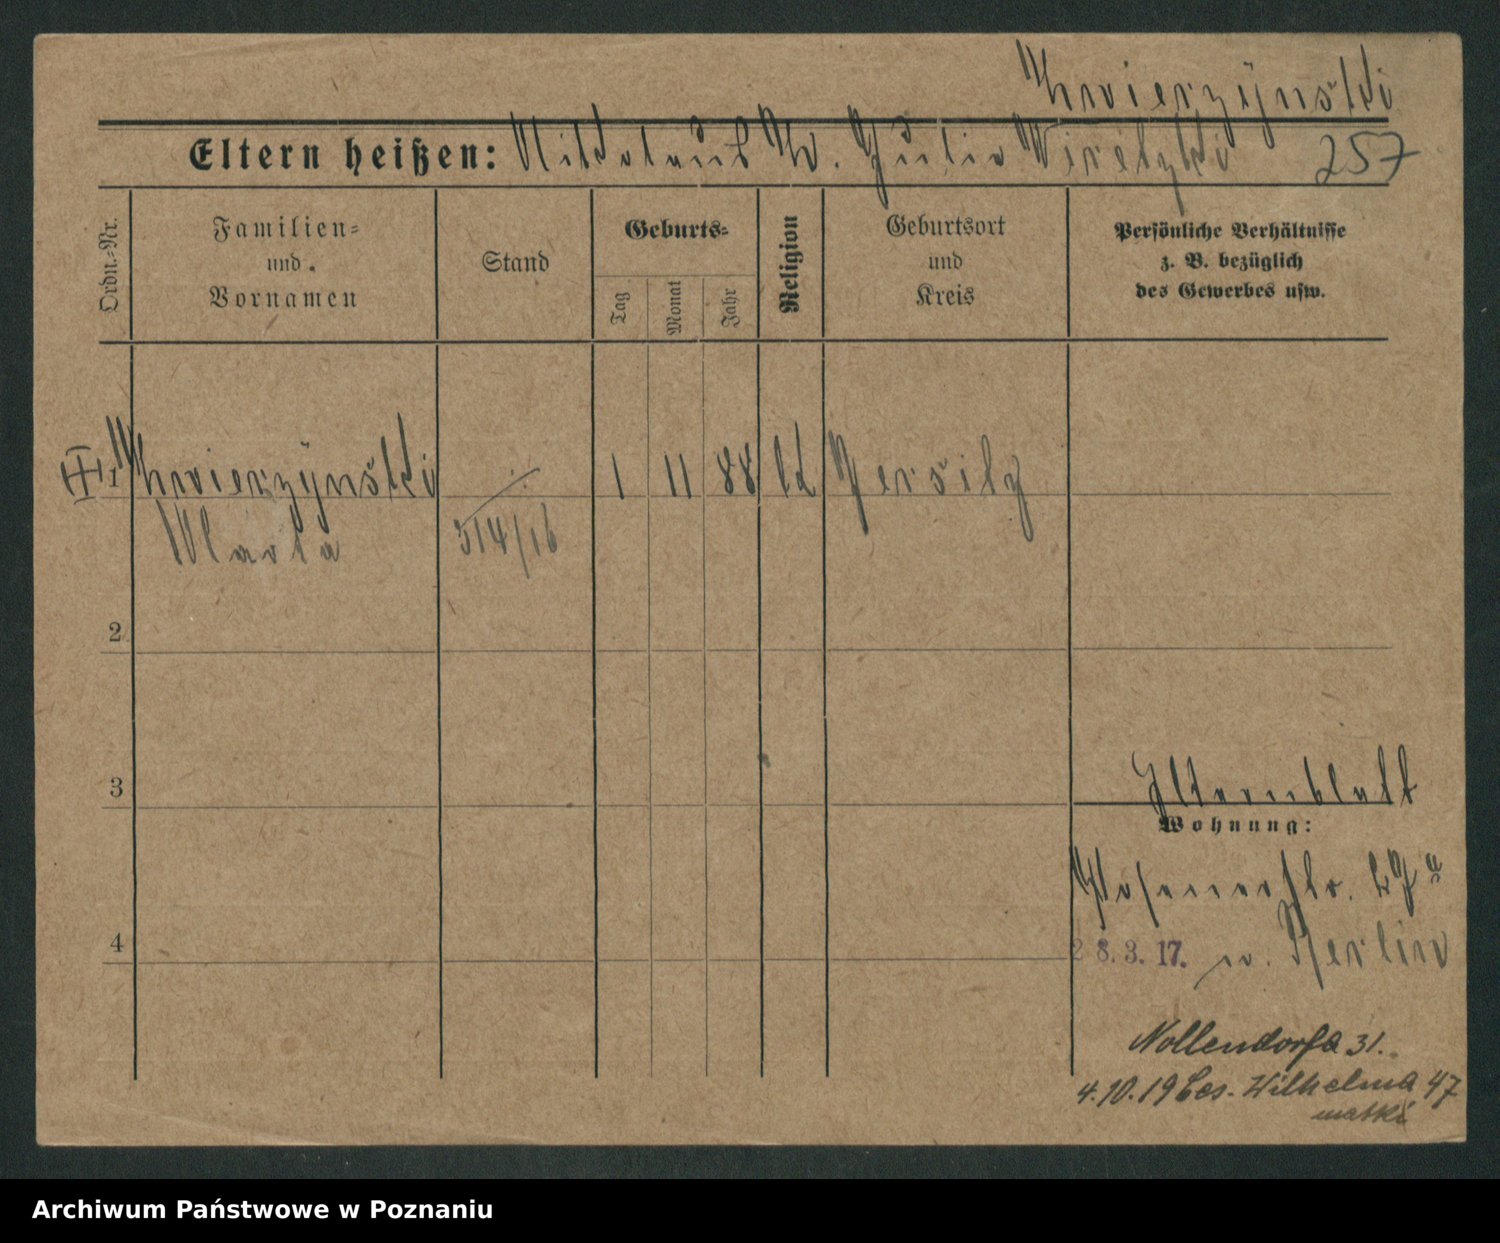 Zwierzynski
Eltern heißen: Nikolaus Zw. Julia 257
Ordn.-Nr.
Familien-
und
Vornamen
Stand
Geburts-
Tag
Monat
Jahr
Religion
Geburtsort
und
Kreis
Persönliche Verhältnisse
z. B. bezüglich
des Gewerbes usw.
1 Zwierzynski 1 11 88 Jersitz
314/16
2
3
Elternblatt
Wohnung:
Posenerstr.
4
28.3.17. n. Berlin
Nollendorfa 31.
4.10.19 Ces. Wilhelma 47
matki
Archiwum Państwowe w Poznaniu